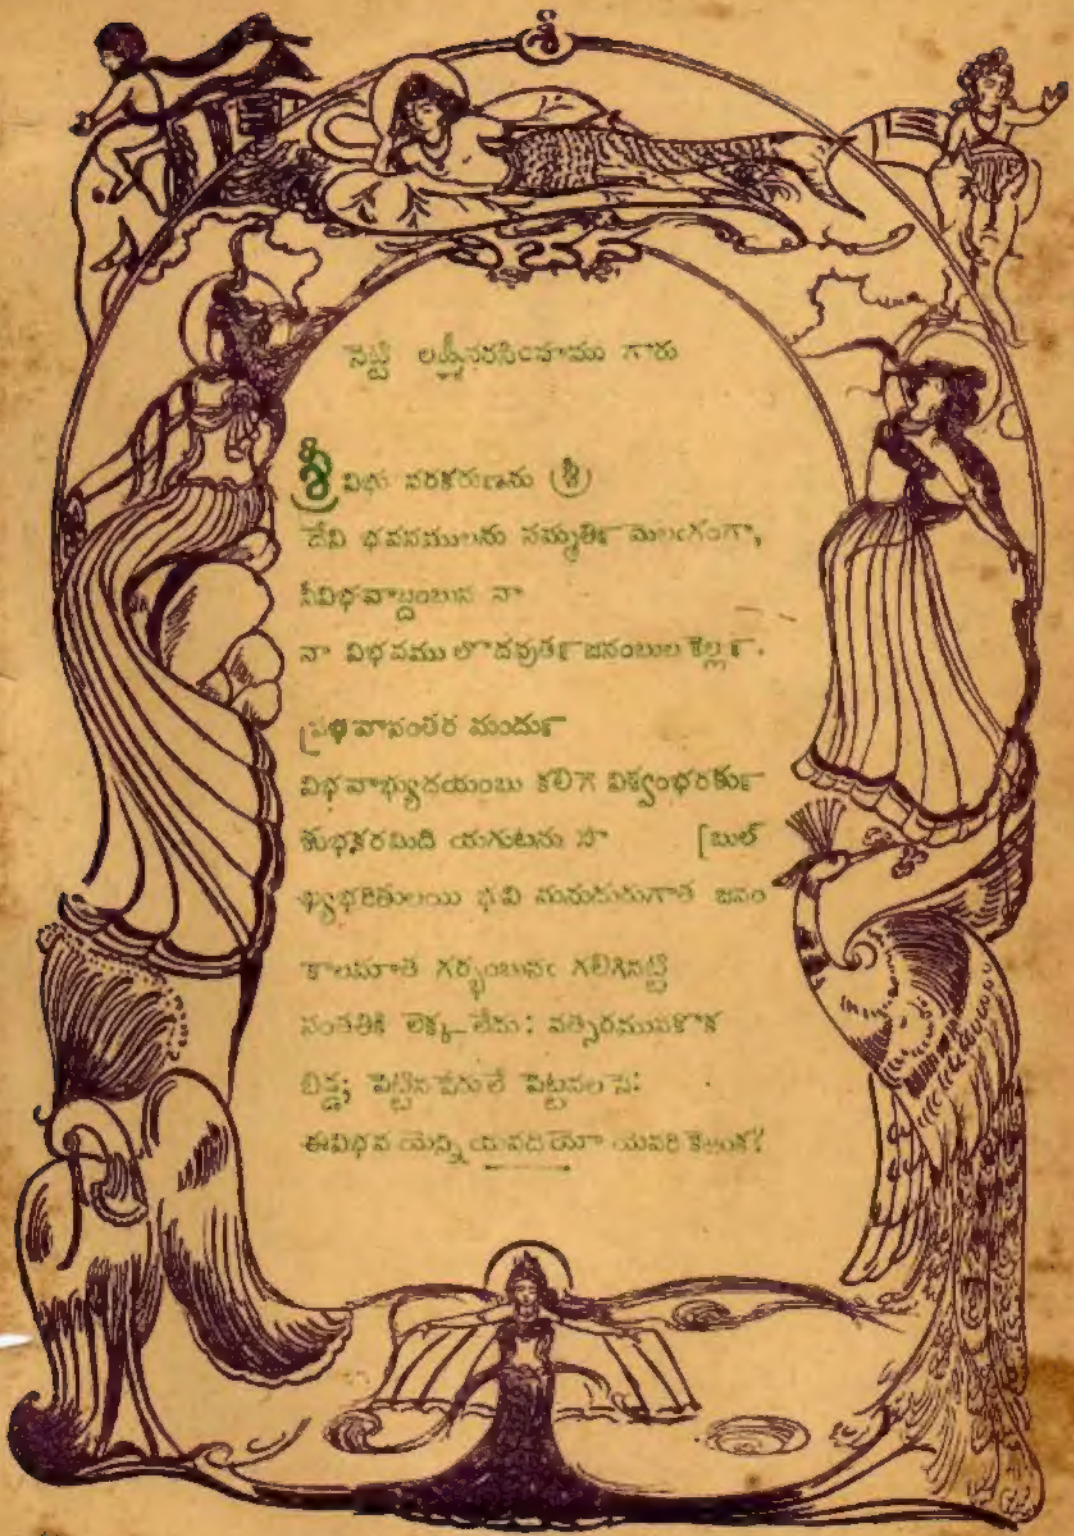 శ్రీ
విభవ
నెట్టి లక్ష్మీనరసింహము గారు
శ్రీవిభు వరకరుణను (శ్రీ)
దేవి భవనములను సమ్మతిఁ మెలఁగంగా,
నీవిభవాబ్దంబున నా
నా విభవము లొదవుతఁ జనంబుల కెల్లఁ.
ప్రభవానంతర మందుఁ
విభవాభ్యుదయంబు కలిగె విశ్వంభరకుఁ
శుభకరమిది యగుటను సౌ [బుల్
ఖ్యభరితులయి భువి మనుదురుగాత జనం
కాలమాత గర్భంబునఁ గలిగినట్టి
సంతతికి లెక్క లేదు: వత్సరమునకొక
బిడ్డ; పెట్టిన పేరులే పెట్టవలసె:
ఈవిభవ యెన్ని యవదియో యెవరి కెఱుక?